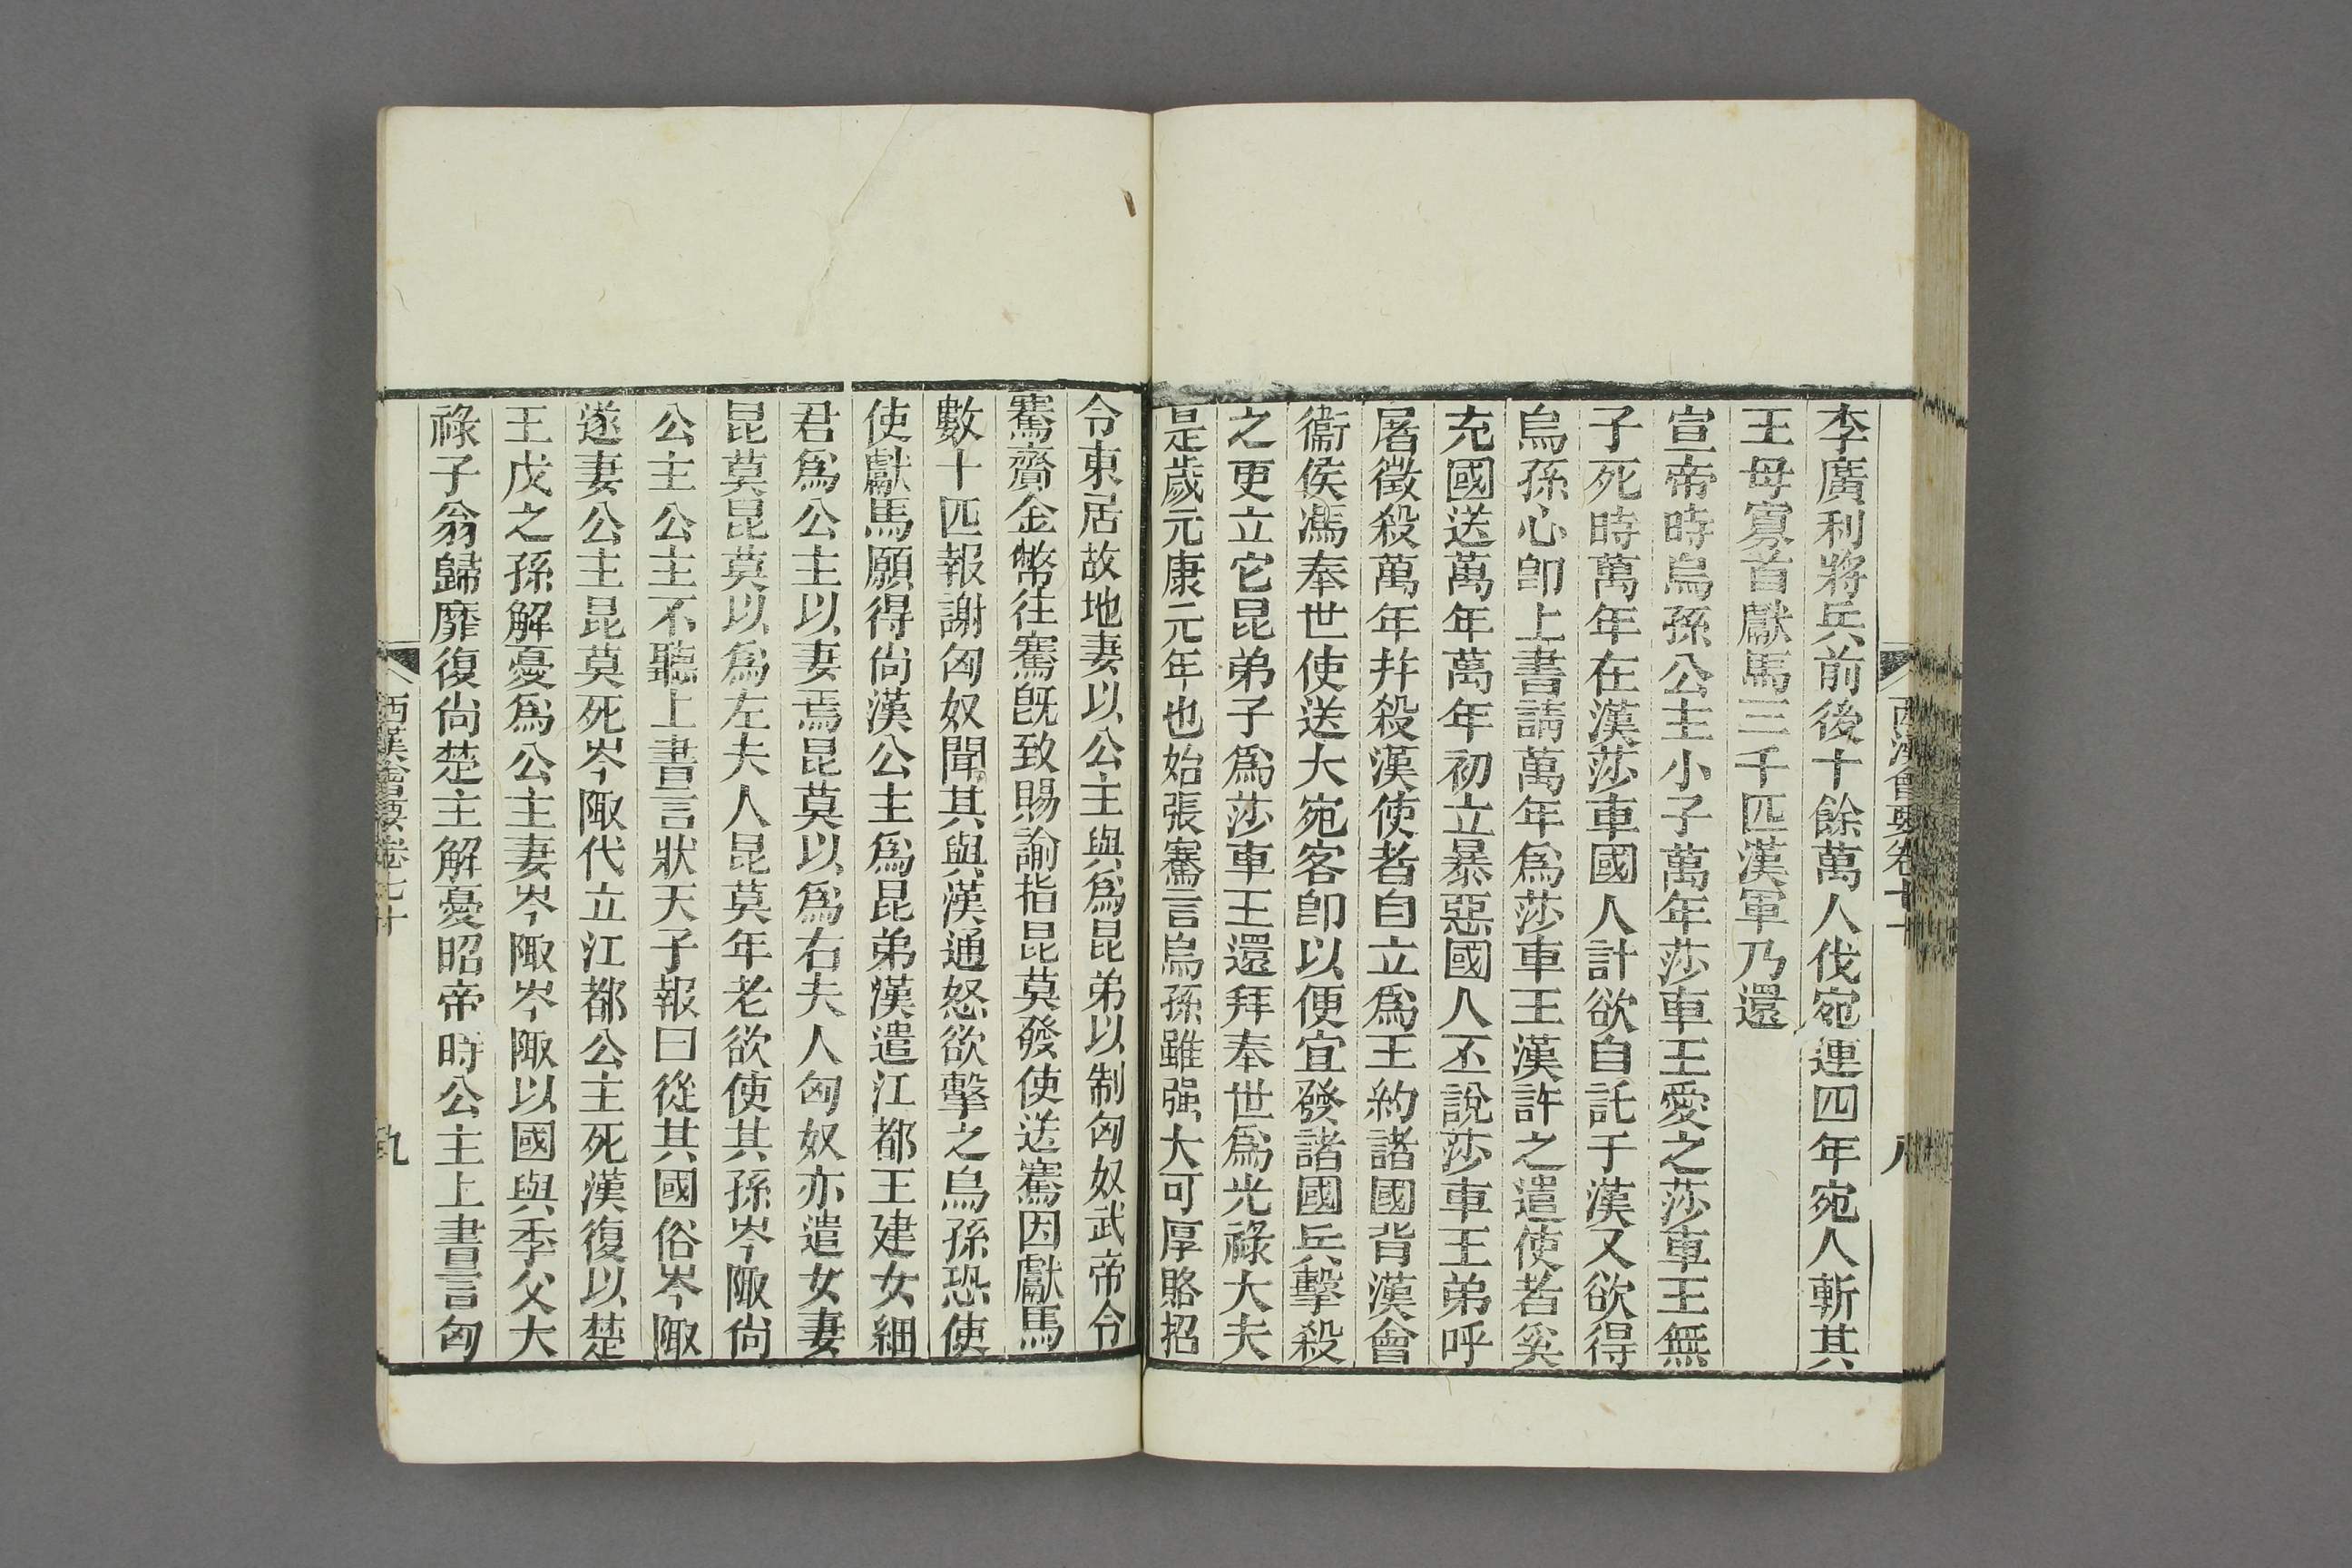 西漢會要卷七十
八
李廣利將兵前後十餘萬人伐宛連四年宛人斬其
王毋寡首獻馬三千匹漢軍乃還
宣帝時烏孫公主小子萬年莎車王愛之莎車王無
子死時萬年在漢莎車國人計欲自託于漢又欲得
烏孫心卽上書請萬年爲莎車王漢許之遣使者奚
充國送萬年萬年初立暴惡國人不說莎車王弟呼
屠徵殺萬年幷殺漢使者自立爲王約諸國背漢會
衞侯馮奉世使送大宛客卽以便宜發諸國兵擊殺
之更立它昆弟子爲莎車王還拜奉世爲光祿大夫
是歲元康元年也始張騫言烏孫雖强大可厚賂招
令東居故地妻以公主與爲昆弟以制匈奴武帝令
騫齎金幣往騫旣致賜諭指昆莫發使送騫因獻馬
數十匹報謝匈奴聞其與漢通怒欲擊之烏孫恐使
使獻馬願得尙漢公主爲昆弟漢遣江都王建女細
君爲公主以妻焉昆莫以爲右夫人匈奴亦遣女妻
昆莫昆莫以爲左夫人昆莫年老欲使其孫岑陬尙
公主公主不聽上書言狀天子報曰從其國俗岑陬
遂妻公主昆莫死岑陬代立江都公主死漢復以楚
王戊之孫解憂爲公主妻岑陬岑陬以國與季父大
祿子翁歸靡復尙楚主解憂昭帝時公主上書言匈
西漢會要卷七十
九